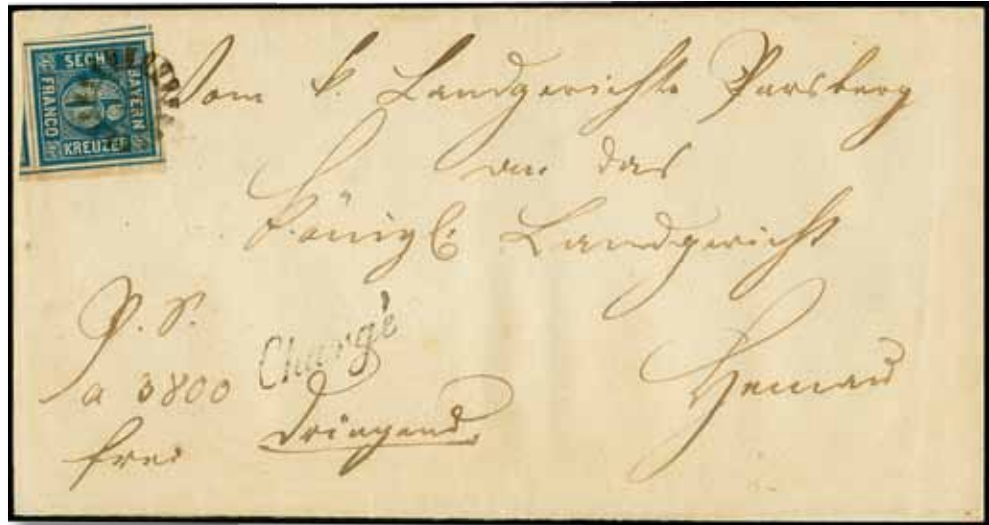 SECHS
BAYERN
FRANCO
KREUZER
6
Vom k. Landgerichte Parsberg
an das
Königl. Landgericht
Hemau
P. S.
a 3800
frei
Chargé
Dringend